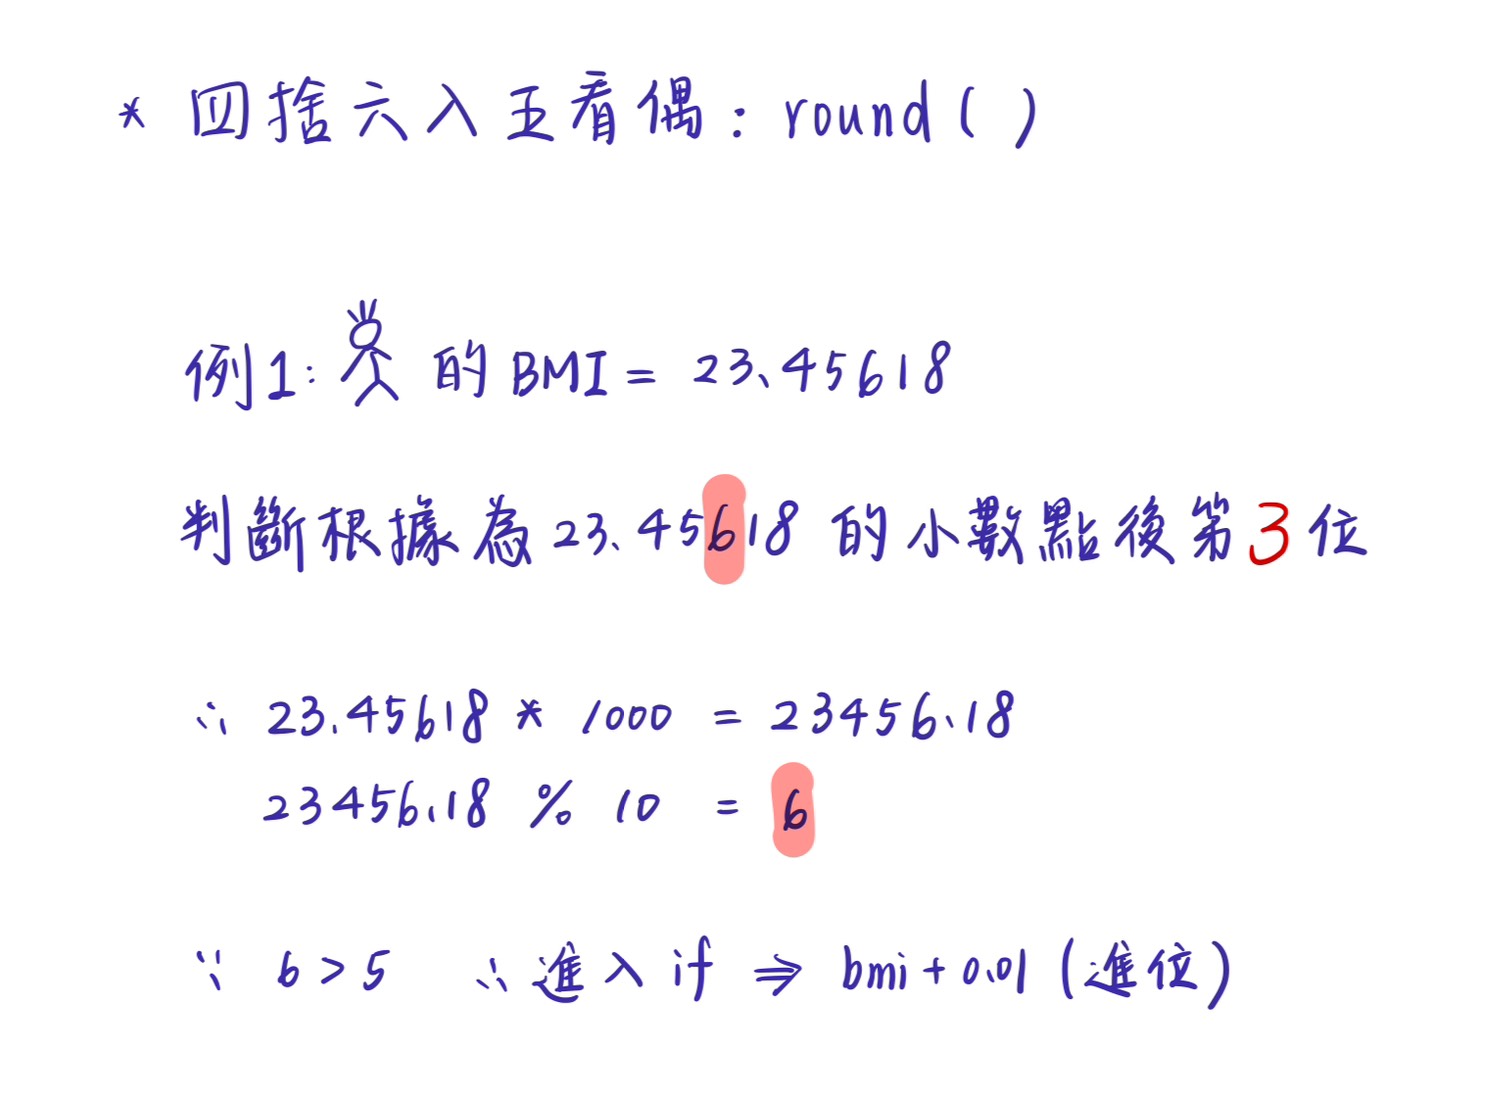 * 四捨六入五看偶：round( )
例1: 的BMI = 23.45618
判斷根據為23.45618 的小數點後第3位
∴ 23.45618 * 1000 = 23456.18
23456.18 % 10 = 6
∵ 6 > 5 ∴進入if ⇒ bmi + 0.01 (進位)